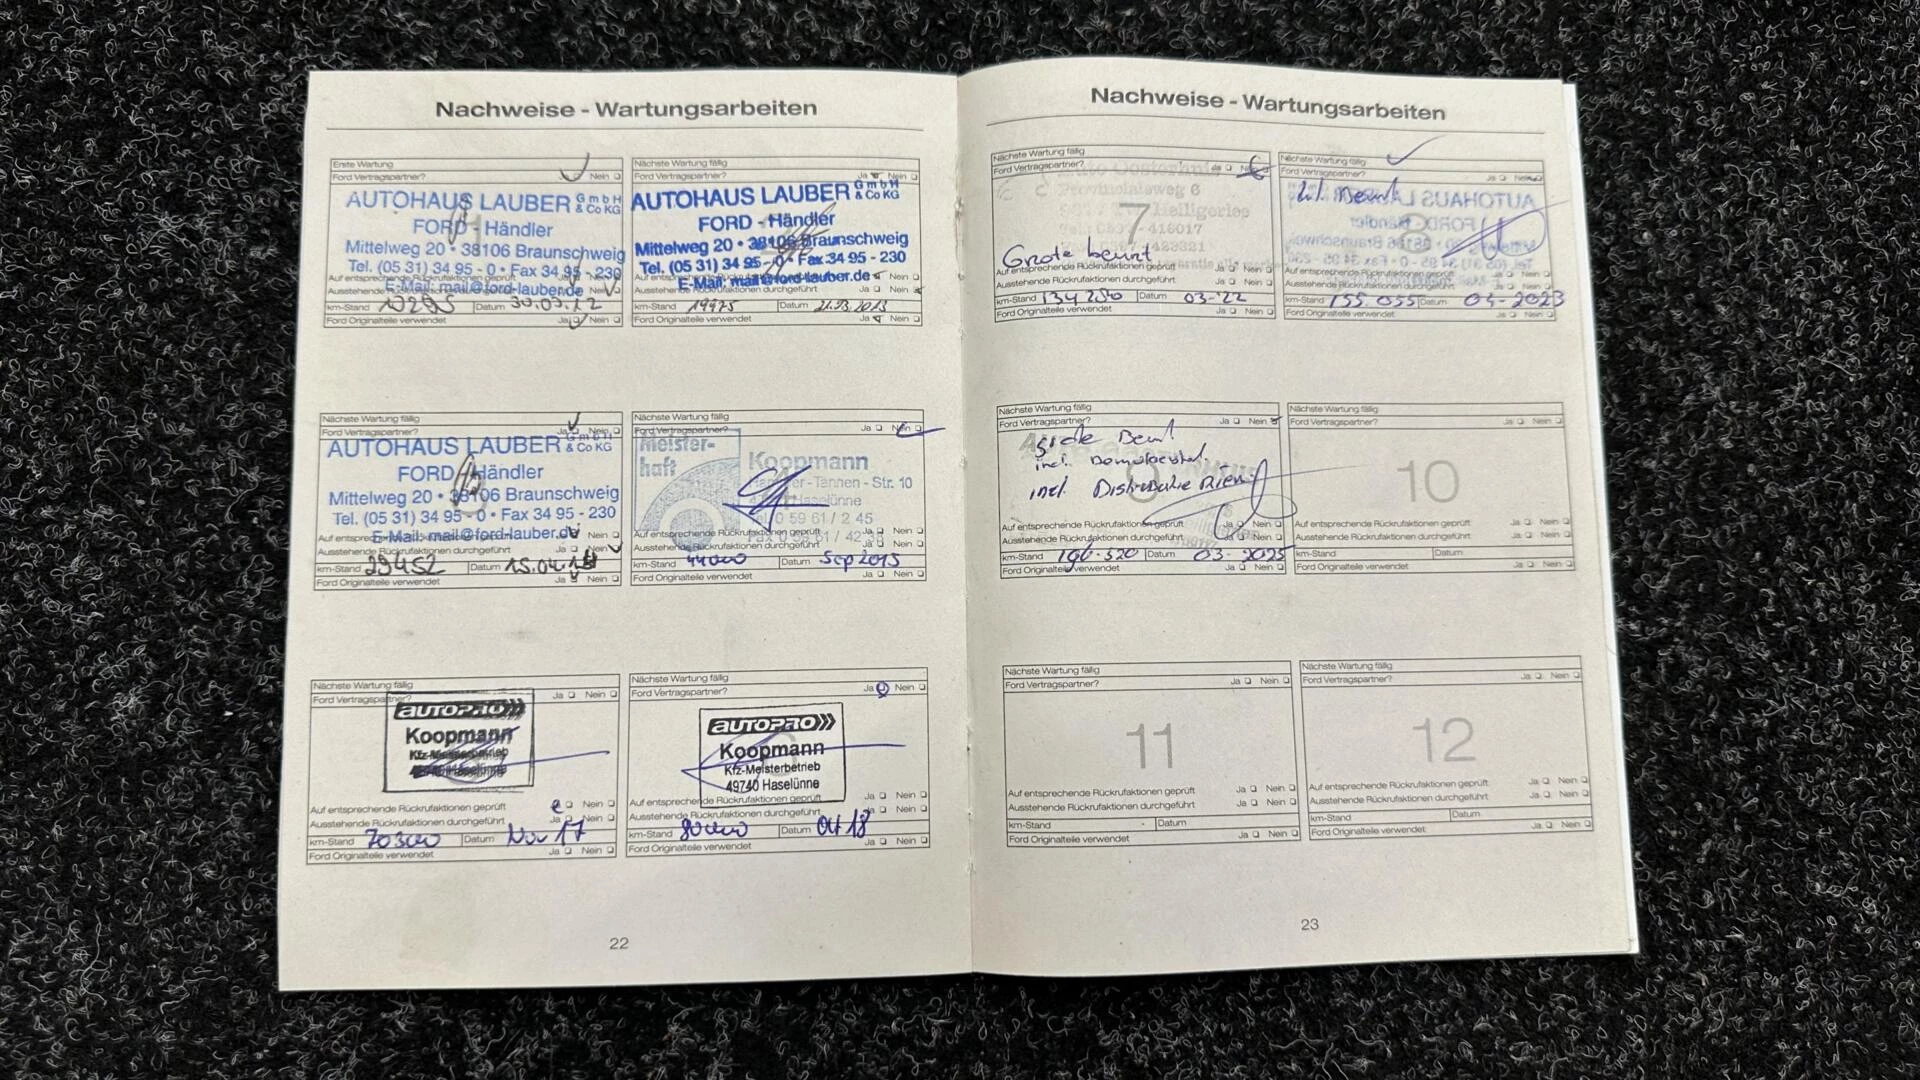 Nachweise - Wartungsarbeiten
Erste Wartung
Ford Vertragspartner? Nein
AUTOHAUS LAUBER GmbH & Co KG
FORD - Händler
Mittelweg 20 • 38106 Braunschweig
Tel. (05 31) 34 95 - 0 • Fax 34 95 - 230
Auf entsprechende Rückrufaktionen geprüft
E-Mail: mail@ford-lauber.de
Ausstehende Rückrufaktionen durchgeführt
km-Stand 10295 Datum 30.03.12
Ford Originalteile verwendet Ja Nein
Nächste Wartung fällig
Ford Vertragspartner? Ja Nein
AUTOHAUS LAUBER GmbH & Co KG
FORD - Händler
Mittelweg 20 • 38106 Braunschweig
Tel. (05 31) 34 95 - 0 • Fax 34 95 - 230
E-Mail: mail@ford-lauber.de Nein
durchgeführt Ja Nein
km-Stand 19975 Datum 21.03.2013
Ford Originalteile verwendet Ja Nein
Nächste Wartung fällig
Ford Vertragspartner? Ja Nein
AUTOHAUS LAUBER GmbH & Co KG
FORD - Händler
Mittelweg 20 • 38106 Braunschweig
Tel. (05 31) 34 95 - 0 • Fax 34 95 - 230
E-Mail: mail@ford-lauber.de Nein
Ausstehende Rückrufaktionen durchgeführt Ja Nein
km-Stand 29452 Datum 15.04.
Ford Originalteile verwendet Ja Nein
Nächste Wartung fällig
Ford Vertragspartner? Ja Nein
Meister-
haft
Koopmann
-Tannen - Str. 10
Haselünne
Tel. 0 59 61 / 2 45
Auf entsprechende Rückrufaktionen geprüft Ja Nein
Ausstehende Rückrufaktionen durchgeführt Ja Nein
km-Stand 44000 Datum Sep 2015
Ford Originalteile verwendet Ja Nein
Nächste Wartung fällig
Ford Vertragspartner? Ja Nein
AUTOPRO
Koopmann
Kfz-Meisterbetrieb
Auf entsprechende Rückrufaktionen geprüft Nein
Ausstehende Rückrufaktionen durchgeführt Ja Nein
km-Stand 70300 Datum Nov 17
Ford Originalteile verwendet Ja Nein
Nächste Wartung fällig
Ford Vertragspartner? Ja Nein
AUTOPRO
Koopmann
Kfz-Meisterbetrieb
49740 Haselünne
Auf entsprechende Rückrufaktionen geprüft Ja Nein
Ausstehende Rückrufaktionen durchgeführt Ja Nein
km-Stand 80000 Datum Okt 18
Ford Originalteile verwendet Ja Nein
22
Nachweise - Wartungsarbeiten
Nächste Wartung fällig
Ford Vertragspartner? Ja
Provincialeweg 6
7
Heiligerlee
Grote beurt
Auf entsprechende Rückrufaktionen geprüft Ja Nein
Ausstehende Rückrufaktionen durchgeführt Ja Nein
km-Stand 134250 Datum 03-'22
Ford Originalteile verwendet Ja Nein
Nächste Wartung fällig
Ford Vertragspartner? Ja Nein
Auf entsprechende Rückrufaktionen geprüft Ja Nein
Ausstehende Rückrufaktionen durchgeführt Ja Nein
km-Stand 155.055 Datum 03-2023
Ford Originalteile verwendet Ja Nein
Nächste Wartung fällig
Ford Vertragspartner? Ja Nein
incl. Distributie Riem
Auf entsprechende Rückrufaktionen geprüft Ja Nein
Ausstehende Rückrufaktionen durchgeführt Ja Nein
km-Stand 196.320 Datum 03-2025
Ford Originalteile verwendet Ja Nein
Nächste Wartung fällig
Ford Vertragspartner?
10
Auf entsprechende Rückrufaktionen geprüft Ja Nein
Ausstehende Rückrufaktionen durchgeführt Ja Nein
km-Stand Datum
Ford Originalteile verwendet Ja Nein
Nächste Wartung fällig
Ford Vertragspartner? Ja Nein
11
Auf entsprechende Rückrufaktionen geprüft Ja Nein
Ausstehende Rückrufaktionen durchgeführt Ja Nein
km-Stand Datum
Ford Originalteile verwendet Ja Nein
Nächste Wartung fällig
Ford Vertragspartner? Ja Nein
12
Auf entsprechende Rückrufaktionen geprüft Ja Nein
Ausstehende Rückrufaktionen durchgeführt Ja Nein
km-Stand Datum
Ford Originalteile verwendet Ja Nein
23